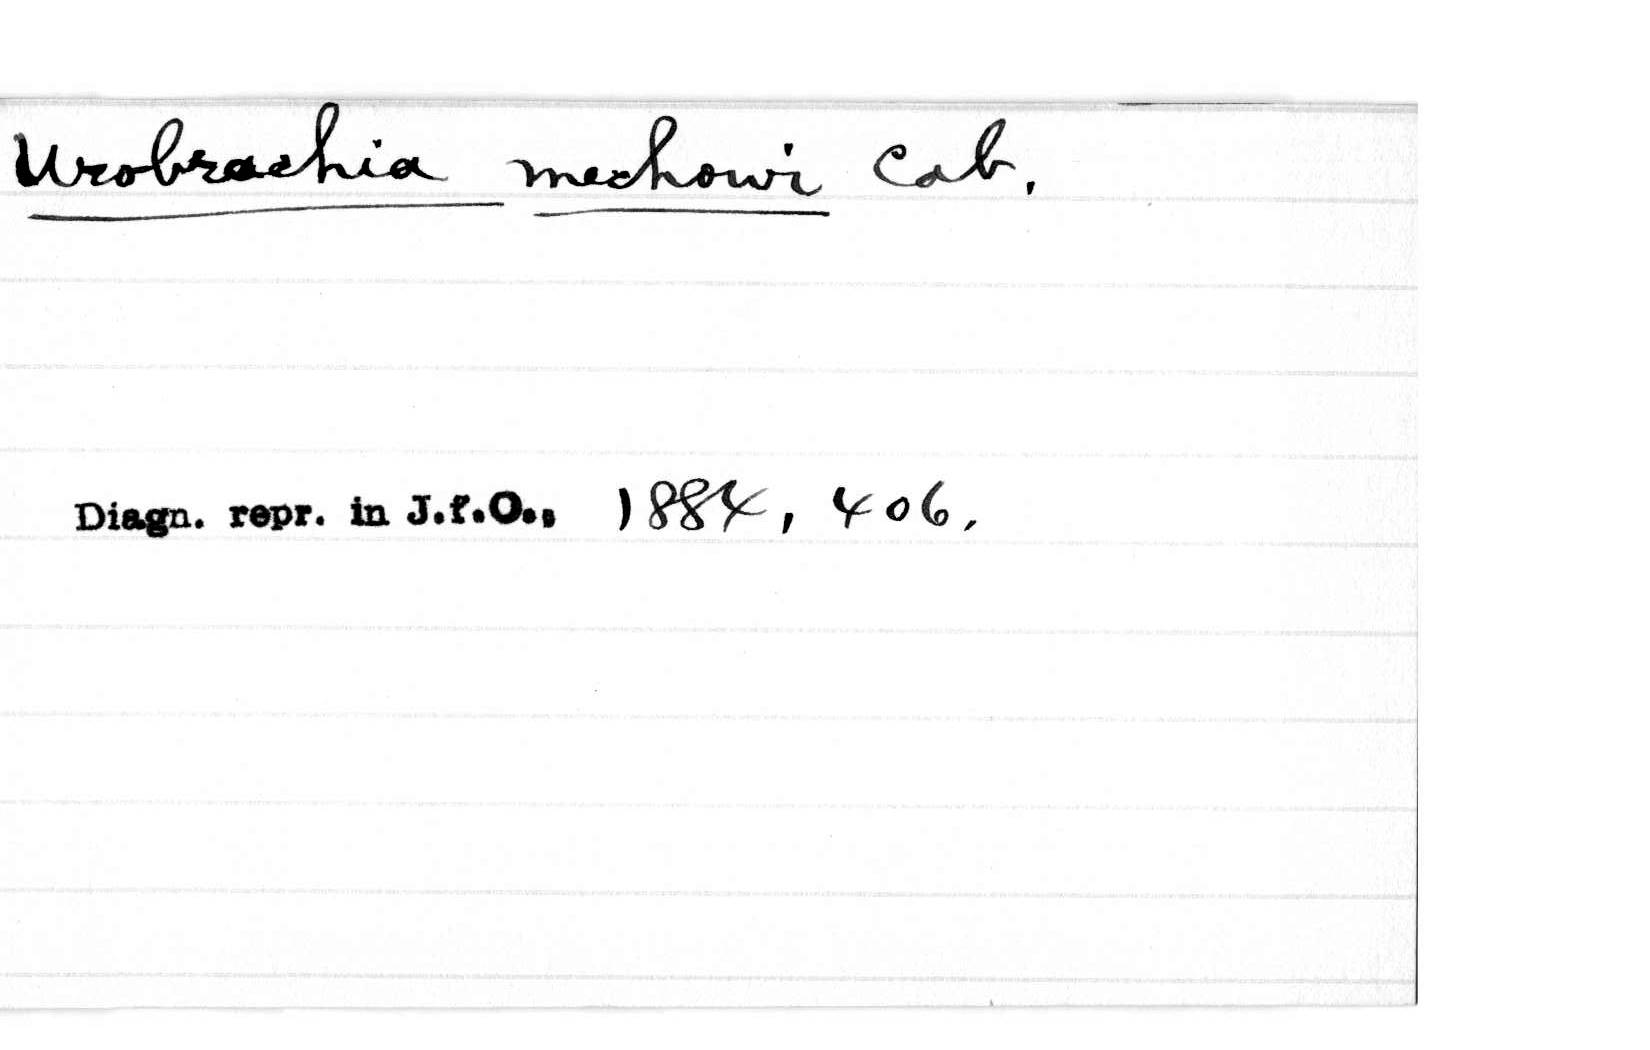 Urobrachia mechowi Cab.
Diagn. repr. in J.f.O., 1884, 406.